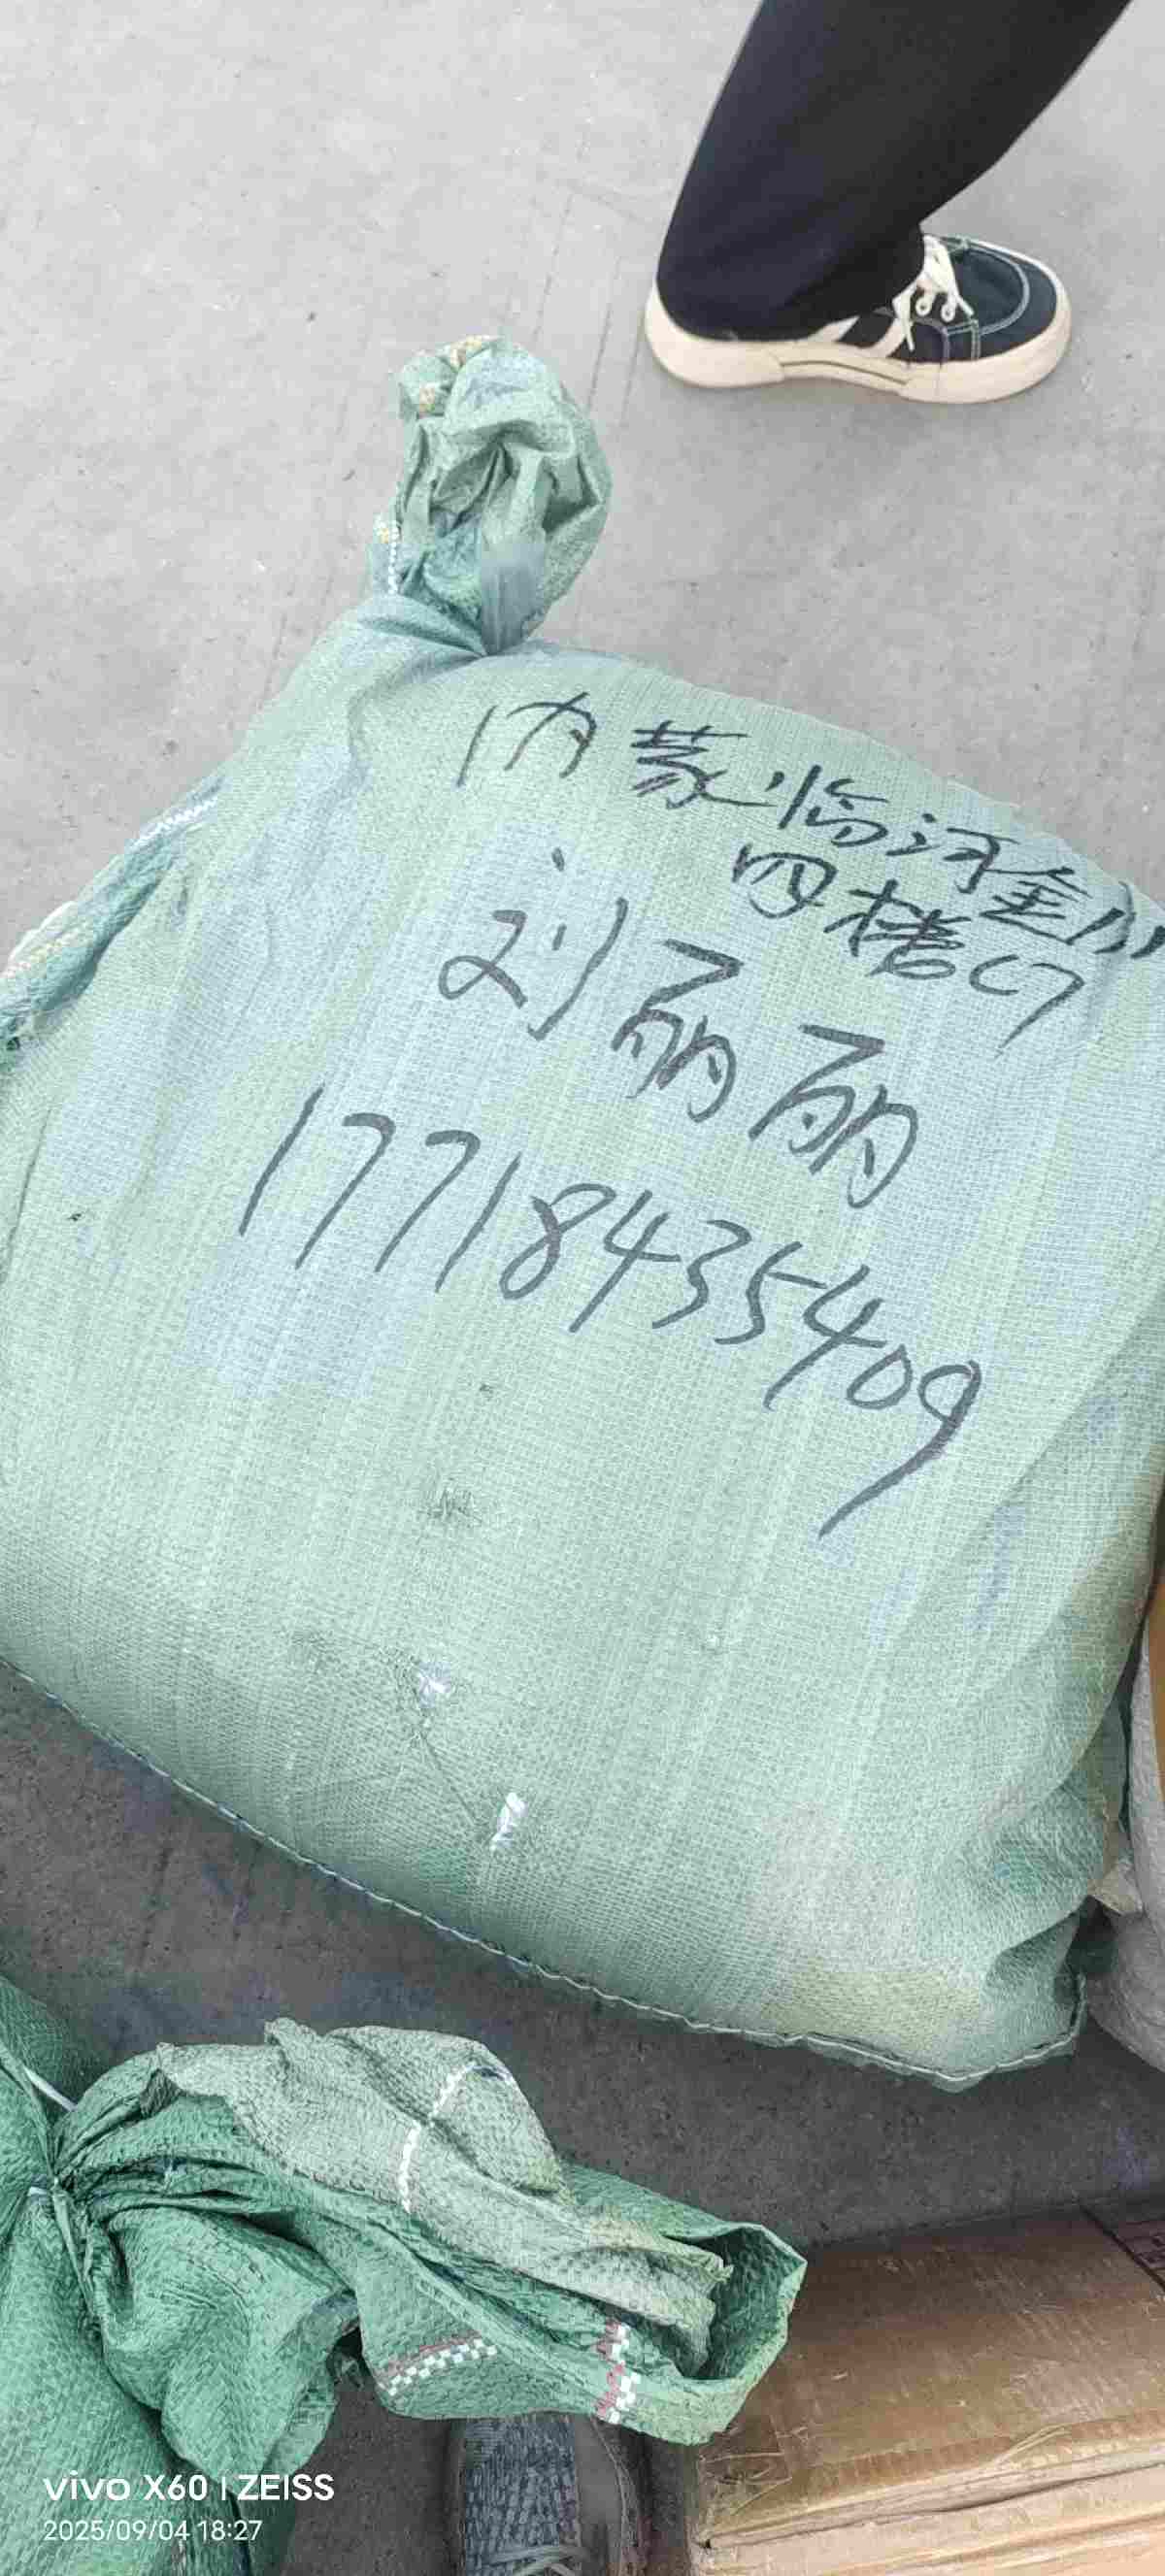 内蒙临河金川
四楼C7
刘丽丽
17718435409
vivo X60 | ZEISS
2025/09/04 18:27